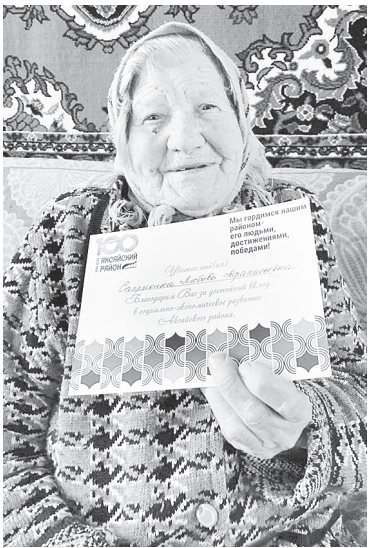 100
АКСАЙСКИЙ
РАЙОН
Мы гордимся нашим
районом-
его людьми,
достижениями,
победами!
Уважаемый(ая)
Любовь
Благодарим Вас за достойный вклад
в социально-экономическое развитие
Аксайского района.